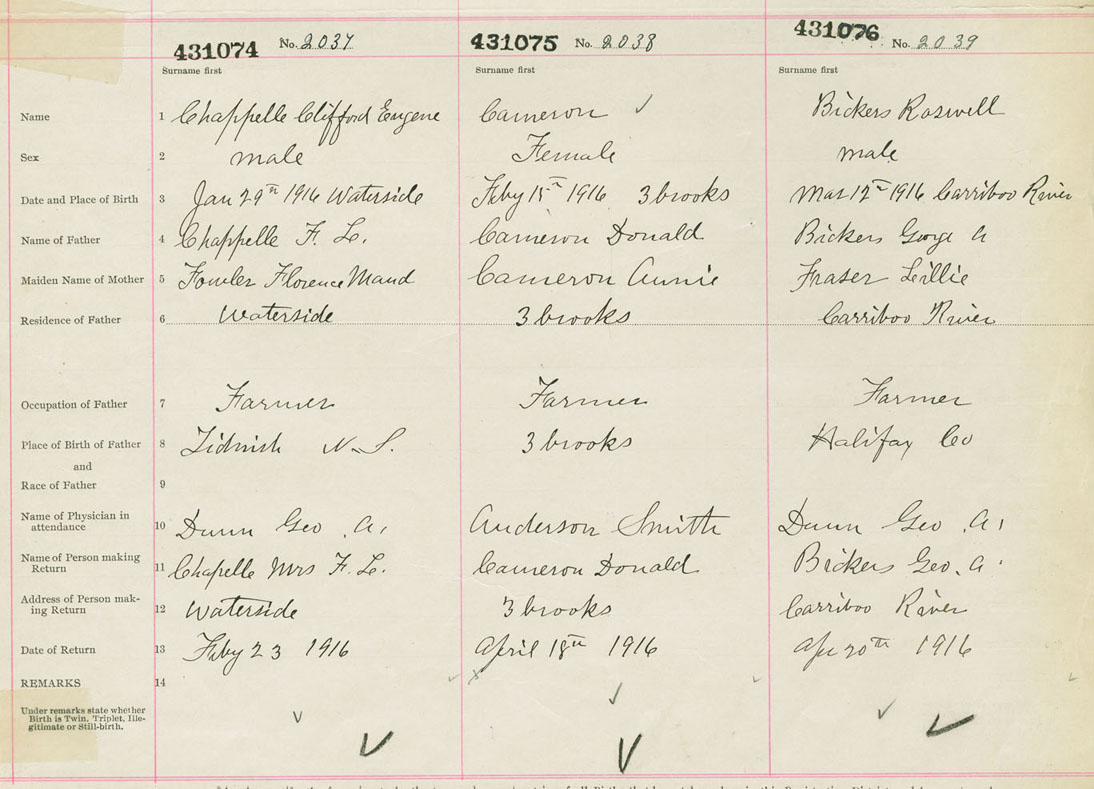 431074 No. 2037 431075 No. 2038 431076 No. 2039
Surname first Surname first Surname first
Name 1 Chappelle Clifford Eugene Cameron Bickers Roswell
Sex 2 male Female male
Date and Place of Birth 3 Jan 29th 1916 Waterside Feby 15th 1916 3 brooks Mar 12th 1916 Carriboo River
Name of Father 4 Chappelle F. L. Cameron Donald Bickers George A
Maiden Name of Mother 5 Fowler Florence Maud Cameron Annie Fraser Lillie
Residence of Father 6 Waterside 3 brooks Carriboo River
Occupation of Father 7 Farmer Farmer Farmer
Place of Birth of Father 8 Tidnish N.S. 3 brooks Halifax Co
and
Race of Father 9
Name of Physician in attendance 10 Dunn Geo. A. Anderson Smith Dunn Geo. A.
Name of Person making Return 11 Chapelle Mrs F. L. Cameron Donald Bickers Geo. A.
Address of Person making Return 12 Waterside 3 brooks Carriboo River
Date of Return 13 Feby 23 1916 April 18th 1916 Apr 20th 1916
REMARKS 14
Under remarks state whether
Birth is Twin, Triplet, Ille-
gitimate or Still-birth.